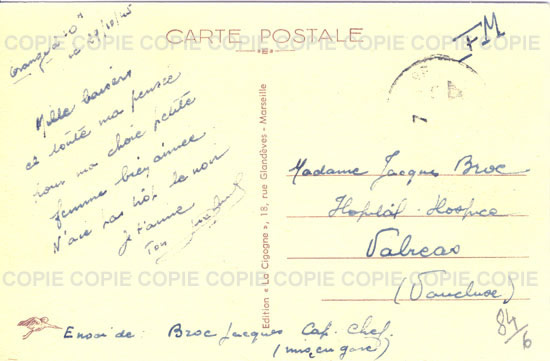 CARTE POSTALE
F.M
le 29/10/45
Mille baisers
et toute ma pensée
pour ma chère petite
femme bien aimée
N'aie pas trop le noir
je t'aime
Ton
Edition « La Cigogne », 18, rue Glandèves - Marseille
7
Madame Jacques Broc
Hopital-Hospice
Valreas
(Vaucluse)
84/6
Envoi de: Broc Jacques Cap. Chef.
COPIE COPIE COPIE COPIE COPIE COPIE COPIE COPIE
COPIE COPIE COPIE COPIE COPIE COPIE COPIE COPIE
COPIE COPIE COPIE COPIE COPIE COPIE COPIE COPIE